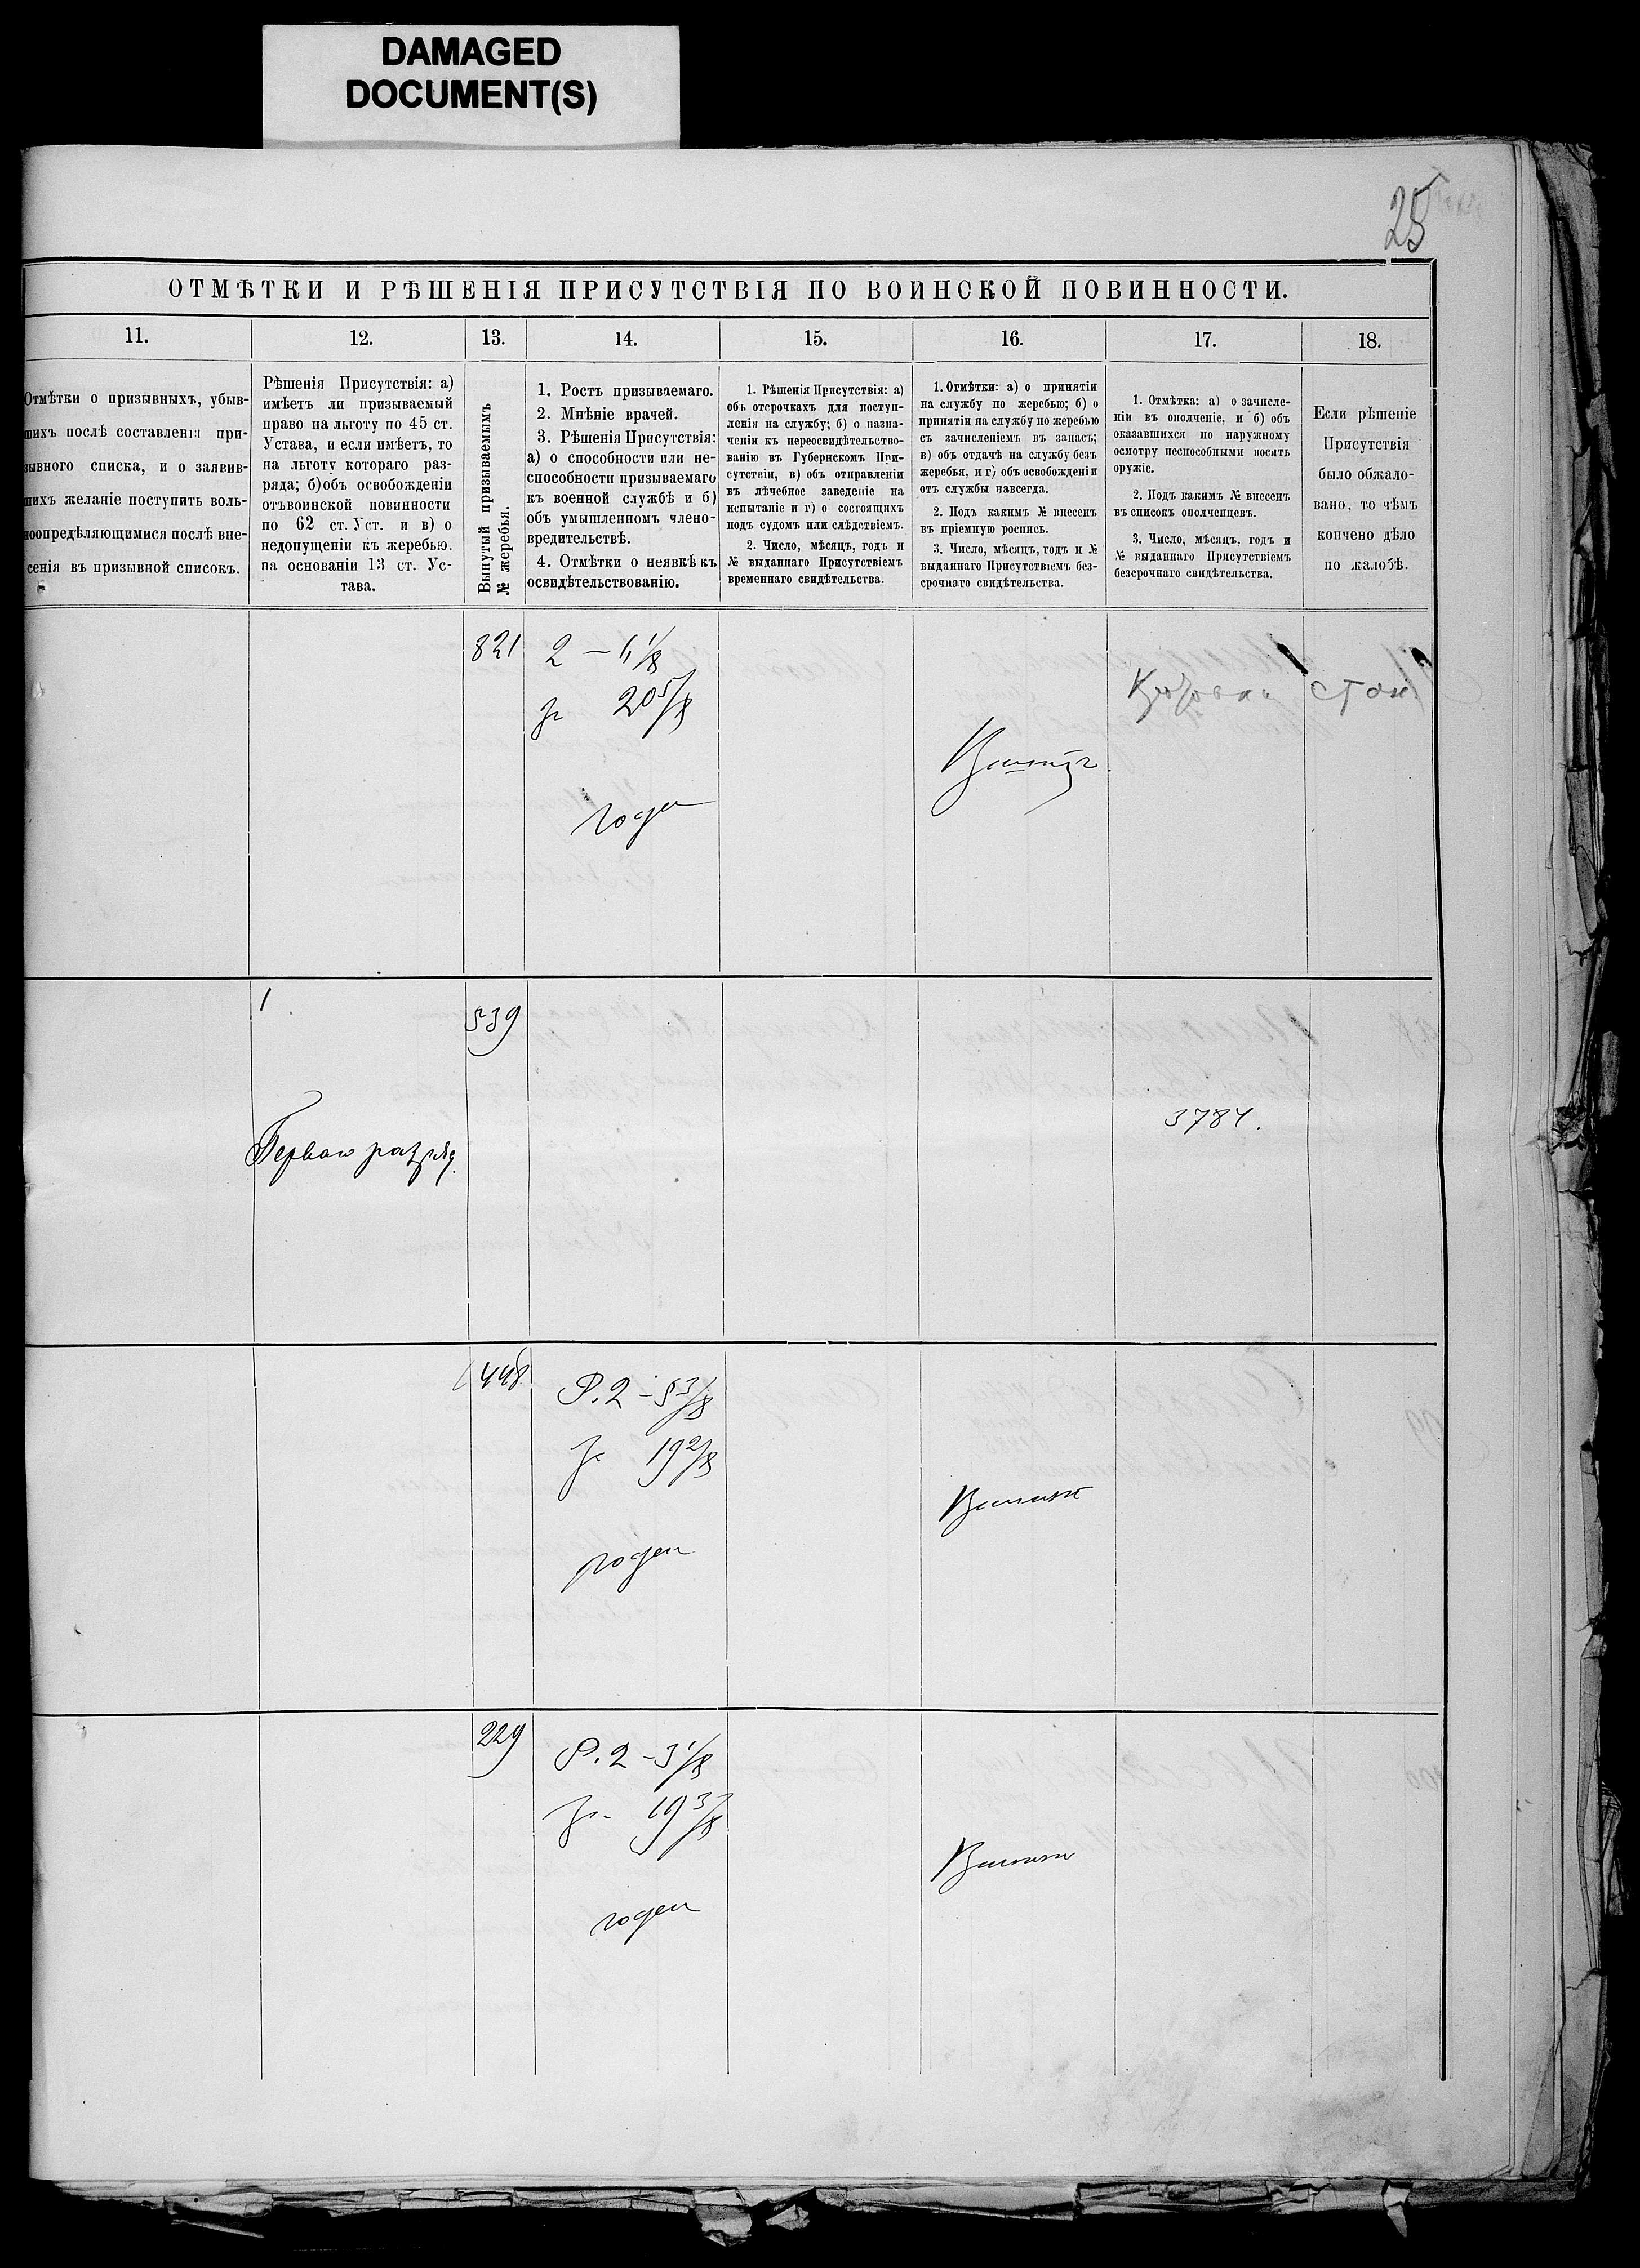 DAMAGED
DOCUMENT(S)
25
ОТМѢТКИ И РѢШЕНІЯ ПРИСУТСТВІЯ ПО ВОИНСКОЙ ПОВИННОСТИ.
11.
12.
13.
14.
15.
16.
17.
18.
Отмѣтки о призывныхъ, убыв-
шихъ послѣ составленія при-
зывного списка, и о заявив-
шихъ желаніе поступить воль-
ноопредѣляющимися послѣ вне-
сенія въ призывной списокъ.
Рѣшенія Присутствія: а)
имѣетъ ли призываемый
право на льготу по 45 ст.
Устава, и если имѣетъ, то
на льготу котораго раз-
ряда; б) объ освобожденіи
отъ воинской повинности
по 62 ст. Уст. и в) о
недопущеніи къ жеребью.
на основаніи 13 ст. Ус-
тава.
Вынутый призываемымъ
№ жеребья.
1. Ростъ призываемаго.
2. Мнѣніе врачей.
3. Рѣшенія Присутствія:
а) о способности или не-
способности призываемаго
къ военной службѣ и б)
объ умышленномъ члено-
вредительствѣ.
4. Отмѣтки о неявкѣ къ
освидѣтельствованію.
1. Рѣшенія Присутствія: а)
объ отсрочкахъ для поступ-
ленія на службу; б) о назна-
ченіи къ переосвидѣтельство-
ванію въ Губернскомъ При-
сутствіи, в) объ отправленіи
въ лѣчебное заведеніе на
испытаніе и г) о состоящихъ
подъ судомъ или слѣдствіемъ.
2. Число, мѣсяцъ, годъ и
№ выданнаго Присутствіемъ
временнаго свидѣтельства.
1. Отмѣтки: а) о принятіи
на службу по жеребью; б) о
принятіи на службу по жеребью
съ зачисленіемъ въ запасъ;
в) объ отдачѣ на службу безъ
жеребья, и г) объ освобожденіи
отъ службы навсегда.
2. Подъ какимъ № внесенъ
въ пріемную роспись.
3. Число, мѣсяцъ, годъ и №
выданнаго Присутствіемъ без-
срочнаго свидѣтельства.
1. Отмѣтка: а) о зачисле-
ніи въ ополченіе, и б) объ
оказавшихся по наружному
осмотру неспособными носить
оружіе.
2. Подъ какимъ № внесенъ
въ списокъ ополченцевъ.
3. Число, мѣсяцъ, годъ и
№ выданнаго Присутствіемъ
безсрочнаго свидѣтельства.
Если рѣшеніе
Присутствія
было обжало-
вано, то чѣмъ
кончено дѣло
по жалобѣ.
821
20 5/8
годен
1
539
Перваго разряд.
3784.
448
Р. 2 – 5 3/8
19 2/8
годен
229
Р. 2 – 3 1/8
19 3/8
годен